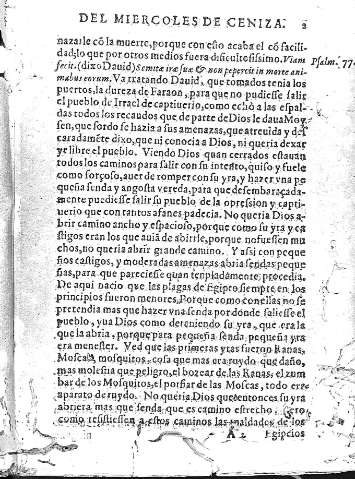 DEL MIERCOLES DE CENIZA. 2
nazarle cõ la muerte, porque con esso acaba el cõ facili-
dad, lo que por otros medios fuera dificultosissimo. Viam
fecit. (dixo Dauid) Semitæ iræ suæ & non pepercit in morte ani-
Psalm. 77.
mabus eorum. Va tratando Dauid, que tomados tenia los
puertos, la dureza de Faraon, para que no pudiesse salir
el pueblo de Israel de captiuerio, como echò a las espal-
das todos los recaudos que de parte de Dios le daua Moy-
sen, que sordo se hazia a sus amenazas, que atreuida y des
caradamẽte dixo, que ni conocia a Dios, ni queria dexar
yr libre el pueblo. Viendo Dios quan cerrados estauan
todos los caminos para salir con su intento, quiso y fuele
como forçoso, auer de romper con su yra, y hazer vna pe
queña senda y angosta vereda, para que desembaraçada-
mente pudiesse salir su pueblo de la opression y capti-
uerio que con tantos afanes padecia. No queria Dios a-
brir camino ancho y espacioso, porque como su yra y ca
stigos eran los que auiã de abrirle, porque no fuessen mu
chos, no queria abrir grande camino. Y assi con peque
ños castigos, y moderadas amenazas abria sendas peque
ñas, para que pareciesse quan templadamente procedia.
De aqui nacio que las plagas de Egipto siempre en los
principios fueron menores, Porque como con ellas no se
pretendia mas que hazer vna senda por donde saliesse el
pueblo, yua Dios como deteniendo su yra, que era la
que la abria, porque para pequeña senda pequeña yra
era menester. Y ed que las primeras yras fueron Ranas,
Moscas, mosquitos, cosa que mas era ruydo que daño,
mas molestia que peligro, el bozear de las Ranas, el zum
bar de los Mosquitos, el porfiar de las Moscas, todo era
aparato de ruydo. No queria Dios que entonces su yra
abriera mas que senda que es camino estrecho. Pero
como resistiessen a estos caminos las maldades de los
A 2 Egipcios